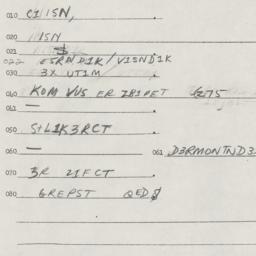 010 C1/ISN,
020 /ISN
021 $
022 ESRNDIK/VISNDIK
030 3X UTIM
040 KOM VUS ER 281PET G275
041 —
050 S+L1K3RCT
060 — 061 D3RMONTND3
070 3R 21FCT
080 GREPST QED $